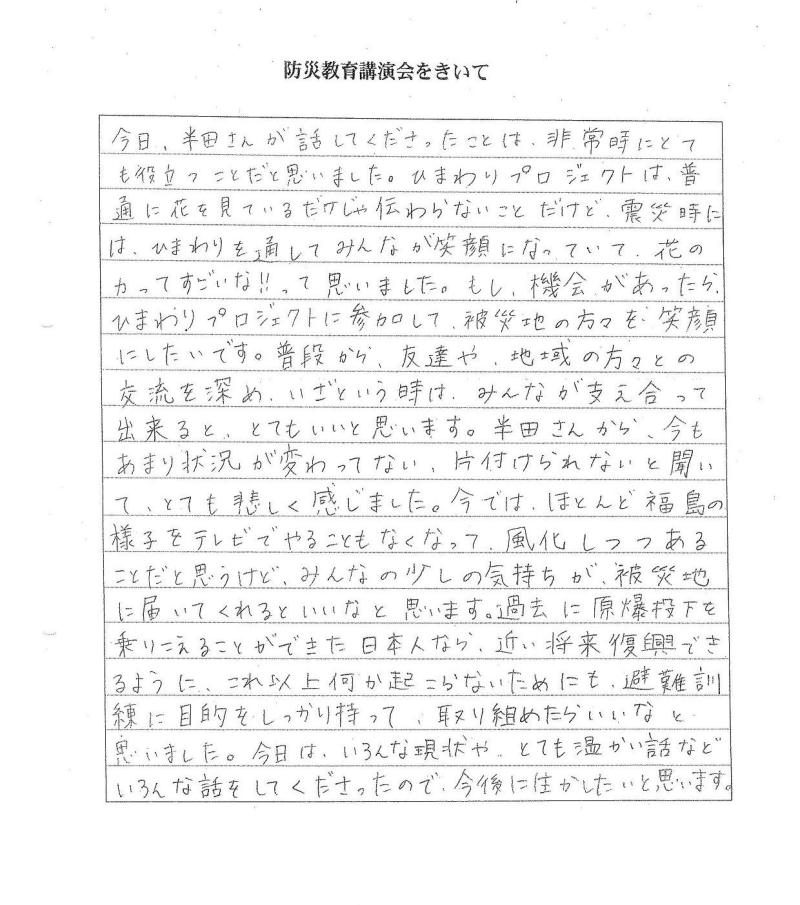 防災教育講演会をきいて
今日、半田さんが話してくださったことは、非常時にとて
も役立つことだと思いました。ひまわりプロジェクトは、普
通に花を見ているだけじゃ伝わらないことだけど、震災時に
は、ひまわりを通してみんなが笑顔になっていて、花の
力ってすごいな!!って思いました。もし、機会があったら、
ひまわりプロジェクトに参加して、被災地の方々を笑顔
にしたいです。普段から、友達や、地域の方々との
交流を深め、いざという時は、みんなが支え合って
出来ると、とてもいいと思います。半田さんから、今も
あまり状況が変わってない、片付けられないと聞い
て、とても悲しく感じました。今では、ほとんど福島の
様子をテレビでやることもなくなって、風化しつつある
ことだと思うけど、みんなの少しの気持ちが、被災地
に届いてくれるといいなと思います。過去に原爆投下を
乗りこえることができた日本人なら、近い将来復興でき
るように、これ以上何か起こらないためにも、避難訓
練に目的をしっかり持って、取り組めたらいいなと
思いました。今日は、いろんな現状や、とても温かい話など
いろんな話をしてくださったので、今後に生かしたいと思います。